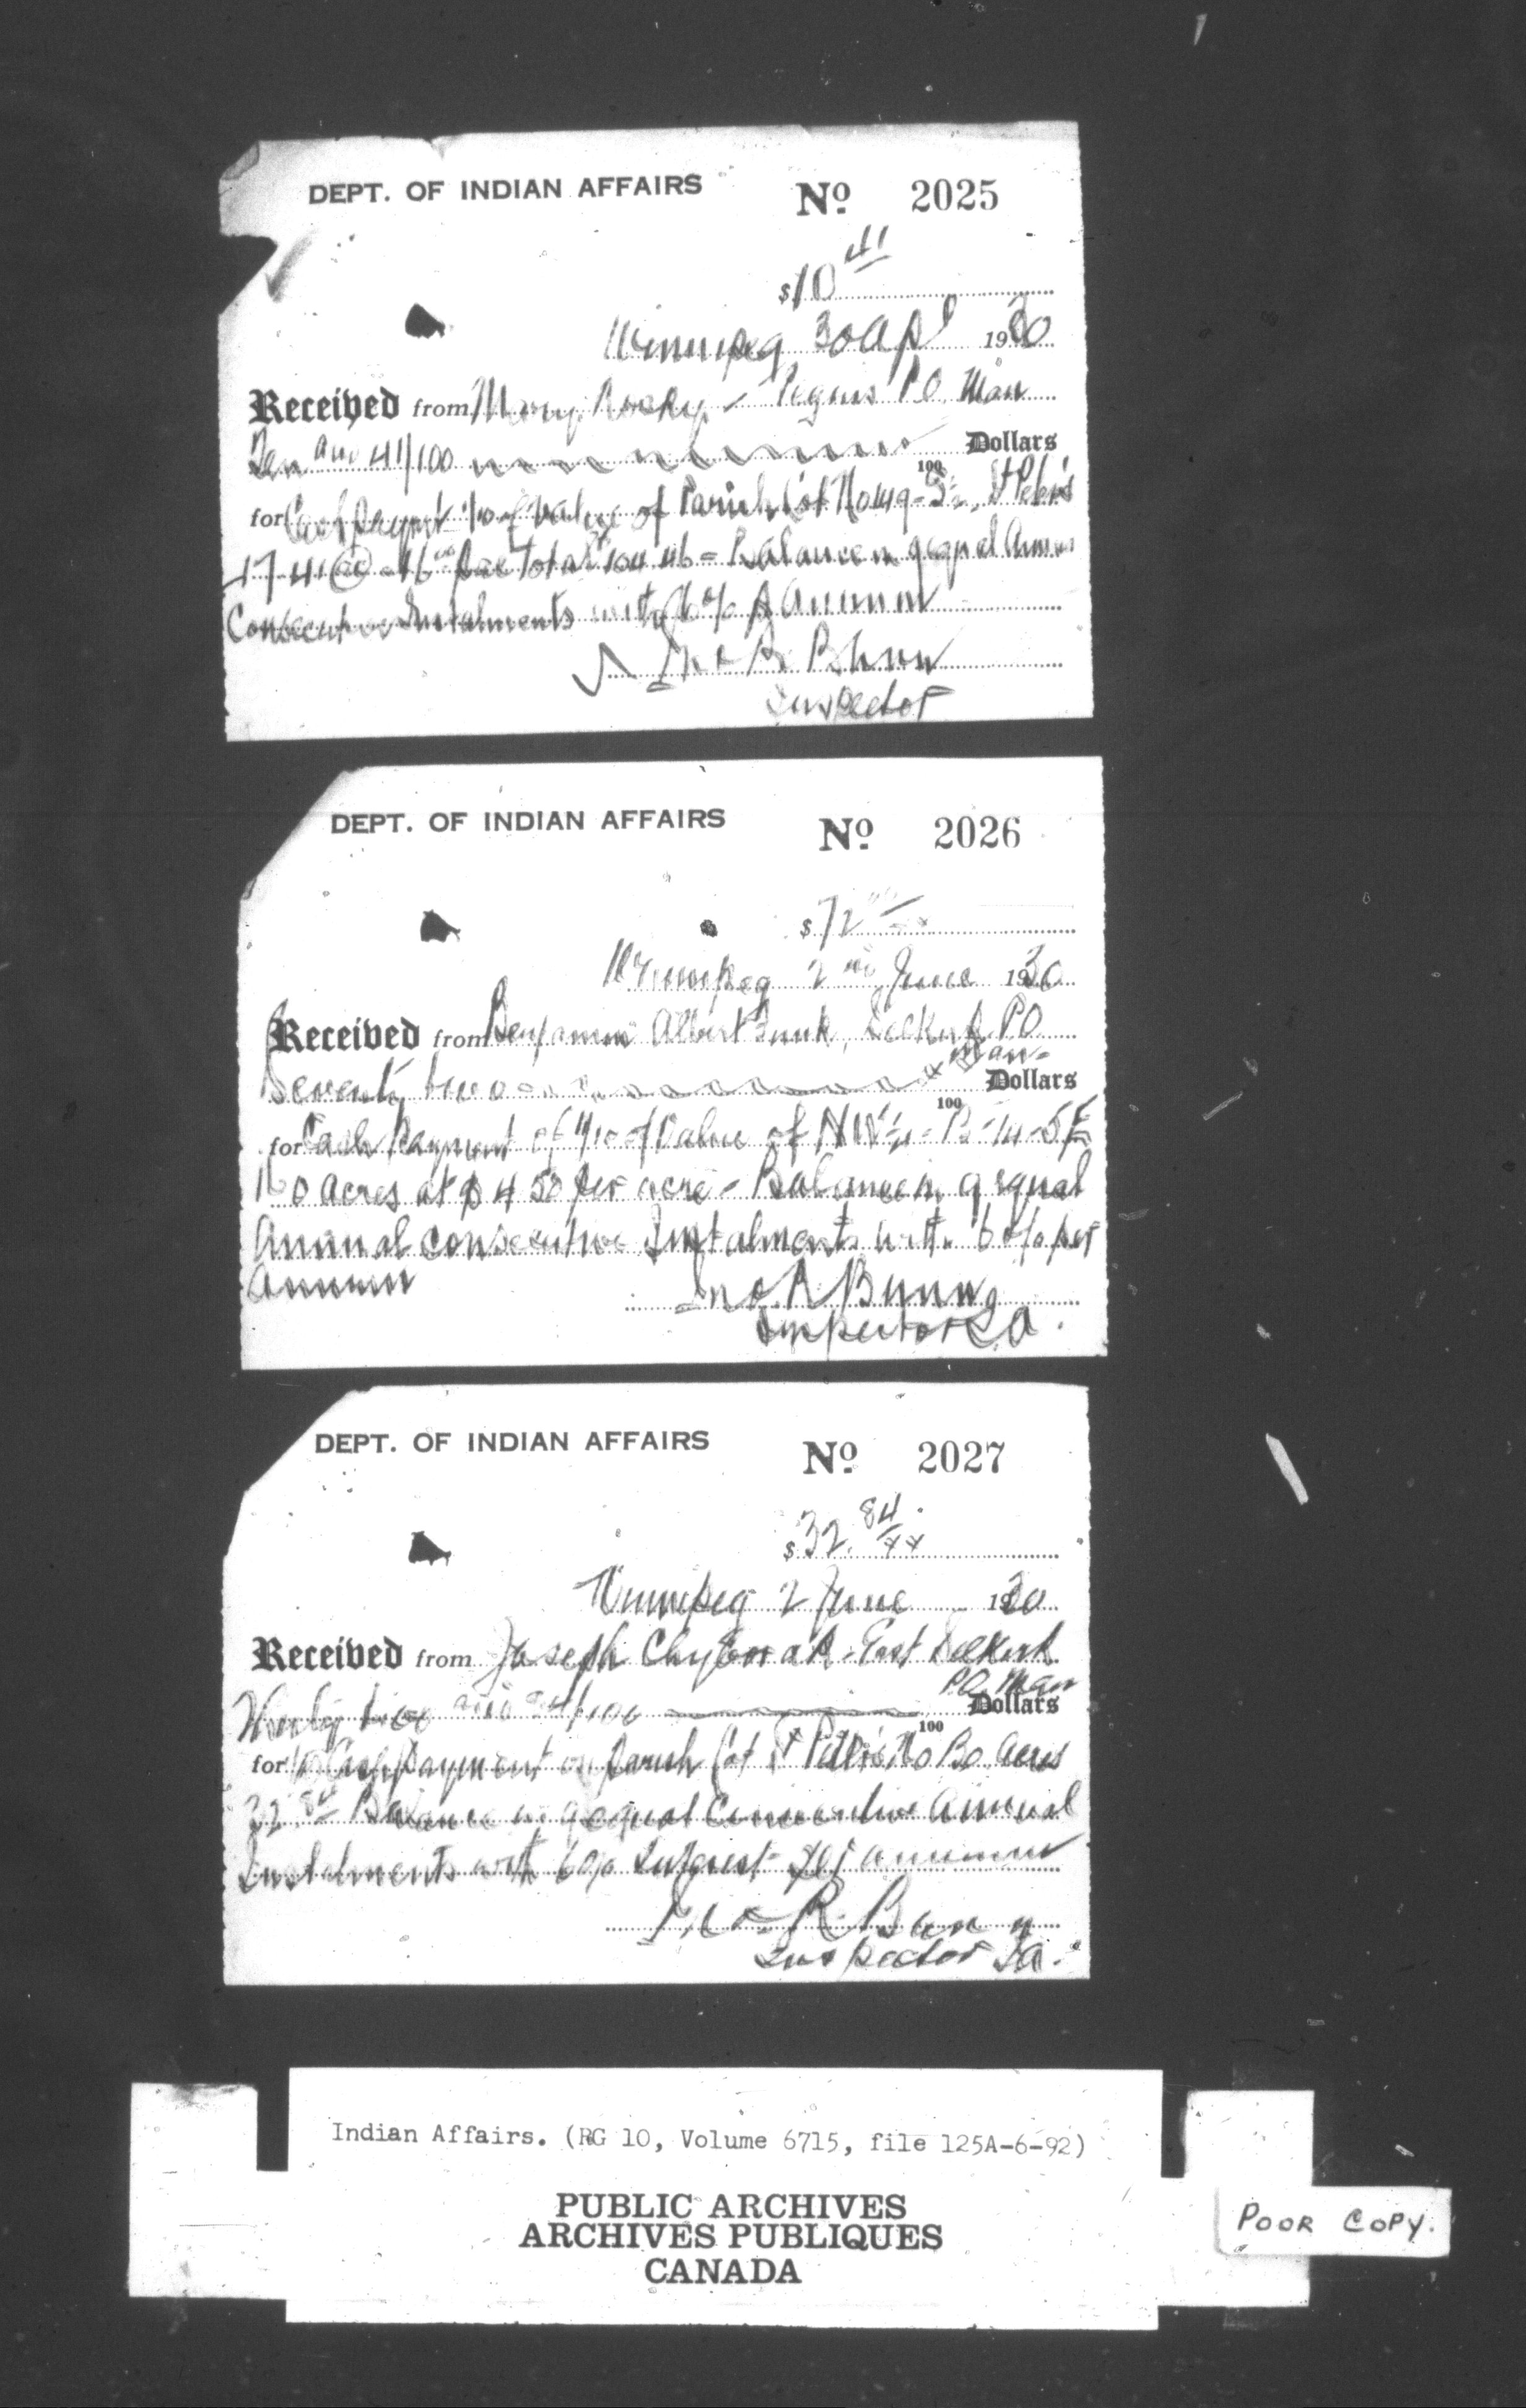 DEPT. OF INDIAN AFFAIRS
No. 2025
$10 41
Winnipeg 30 Apl 1930
Received from Mary Rocky - Peguis P.O. Man
Ten and 41/100 Dollars
100
for Cash payt 1/10 of value of Parish Lot No St Peter's
17 41 ac - 6 00 per total 104 46 - Balance in 9 equal Annu
Consecutive Instalments with 6% P Annum
Jno R Bunn
Inspector
DEPT. OF INDIAN AFFAIRS
No. 2026
$72
Winnipeg 2nd June 1930
Received from Benjamin Albert, Selkirk P.O
Man-
Seventy two Dollars
100
for Cash Payment of 1/10 of Value of NW 1/4 5 E
160 acres at $4 50 per acre - Balance in 9 equal
Annual consecutive Instalments with 6% per
Annum
Jno R Bunn
Inspector I.A.
DEPT. OF INDIAN AFFAIRS
No. 2027
$32. 84
xx
Winnipeg 2 June 1930
Received from Joseph - East Selkirk
P.O. Man
Thirty two and 84/100 Dollars
100
for Cash payment on parish Lot St Peter's No Acres
32.84 Balance in 9 equal Consecutive Annual
Instalments with 6% Interest per annum
Jno R. Bunn
Inspector I.A.
Indian Affairs. (RG 10, Volume 6715, file 125A-6-92)
PUBLIC ARCHIVES
ARCHIVES PUBLIQUES
CANADA
POOR COPY.